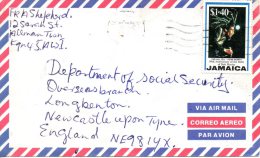 IRA Shepherd.
12 Saril St.
Alleman Twn
Kgn 4 J.A.W.I.
$1·40
JAMAICA
Department of Social Security.
Overseas branch
Longbenton.
Newcastle upon Tyne.
England NE981YX.
VIA AIR MAIL
CORREO AEREO
PAR AVION